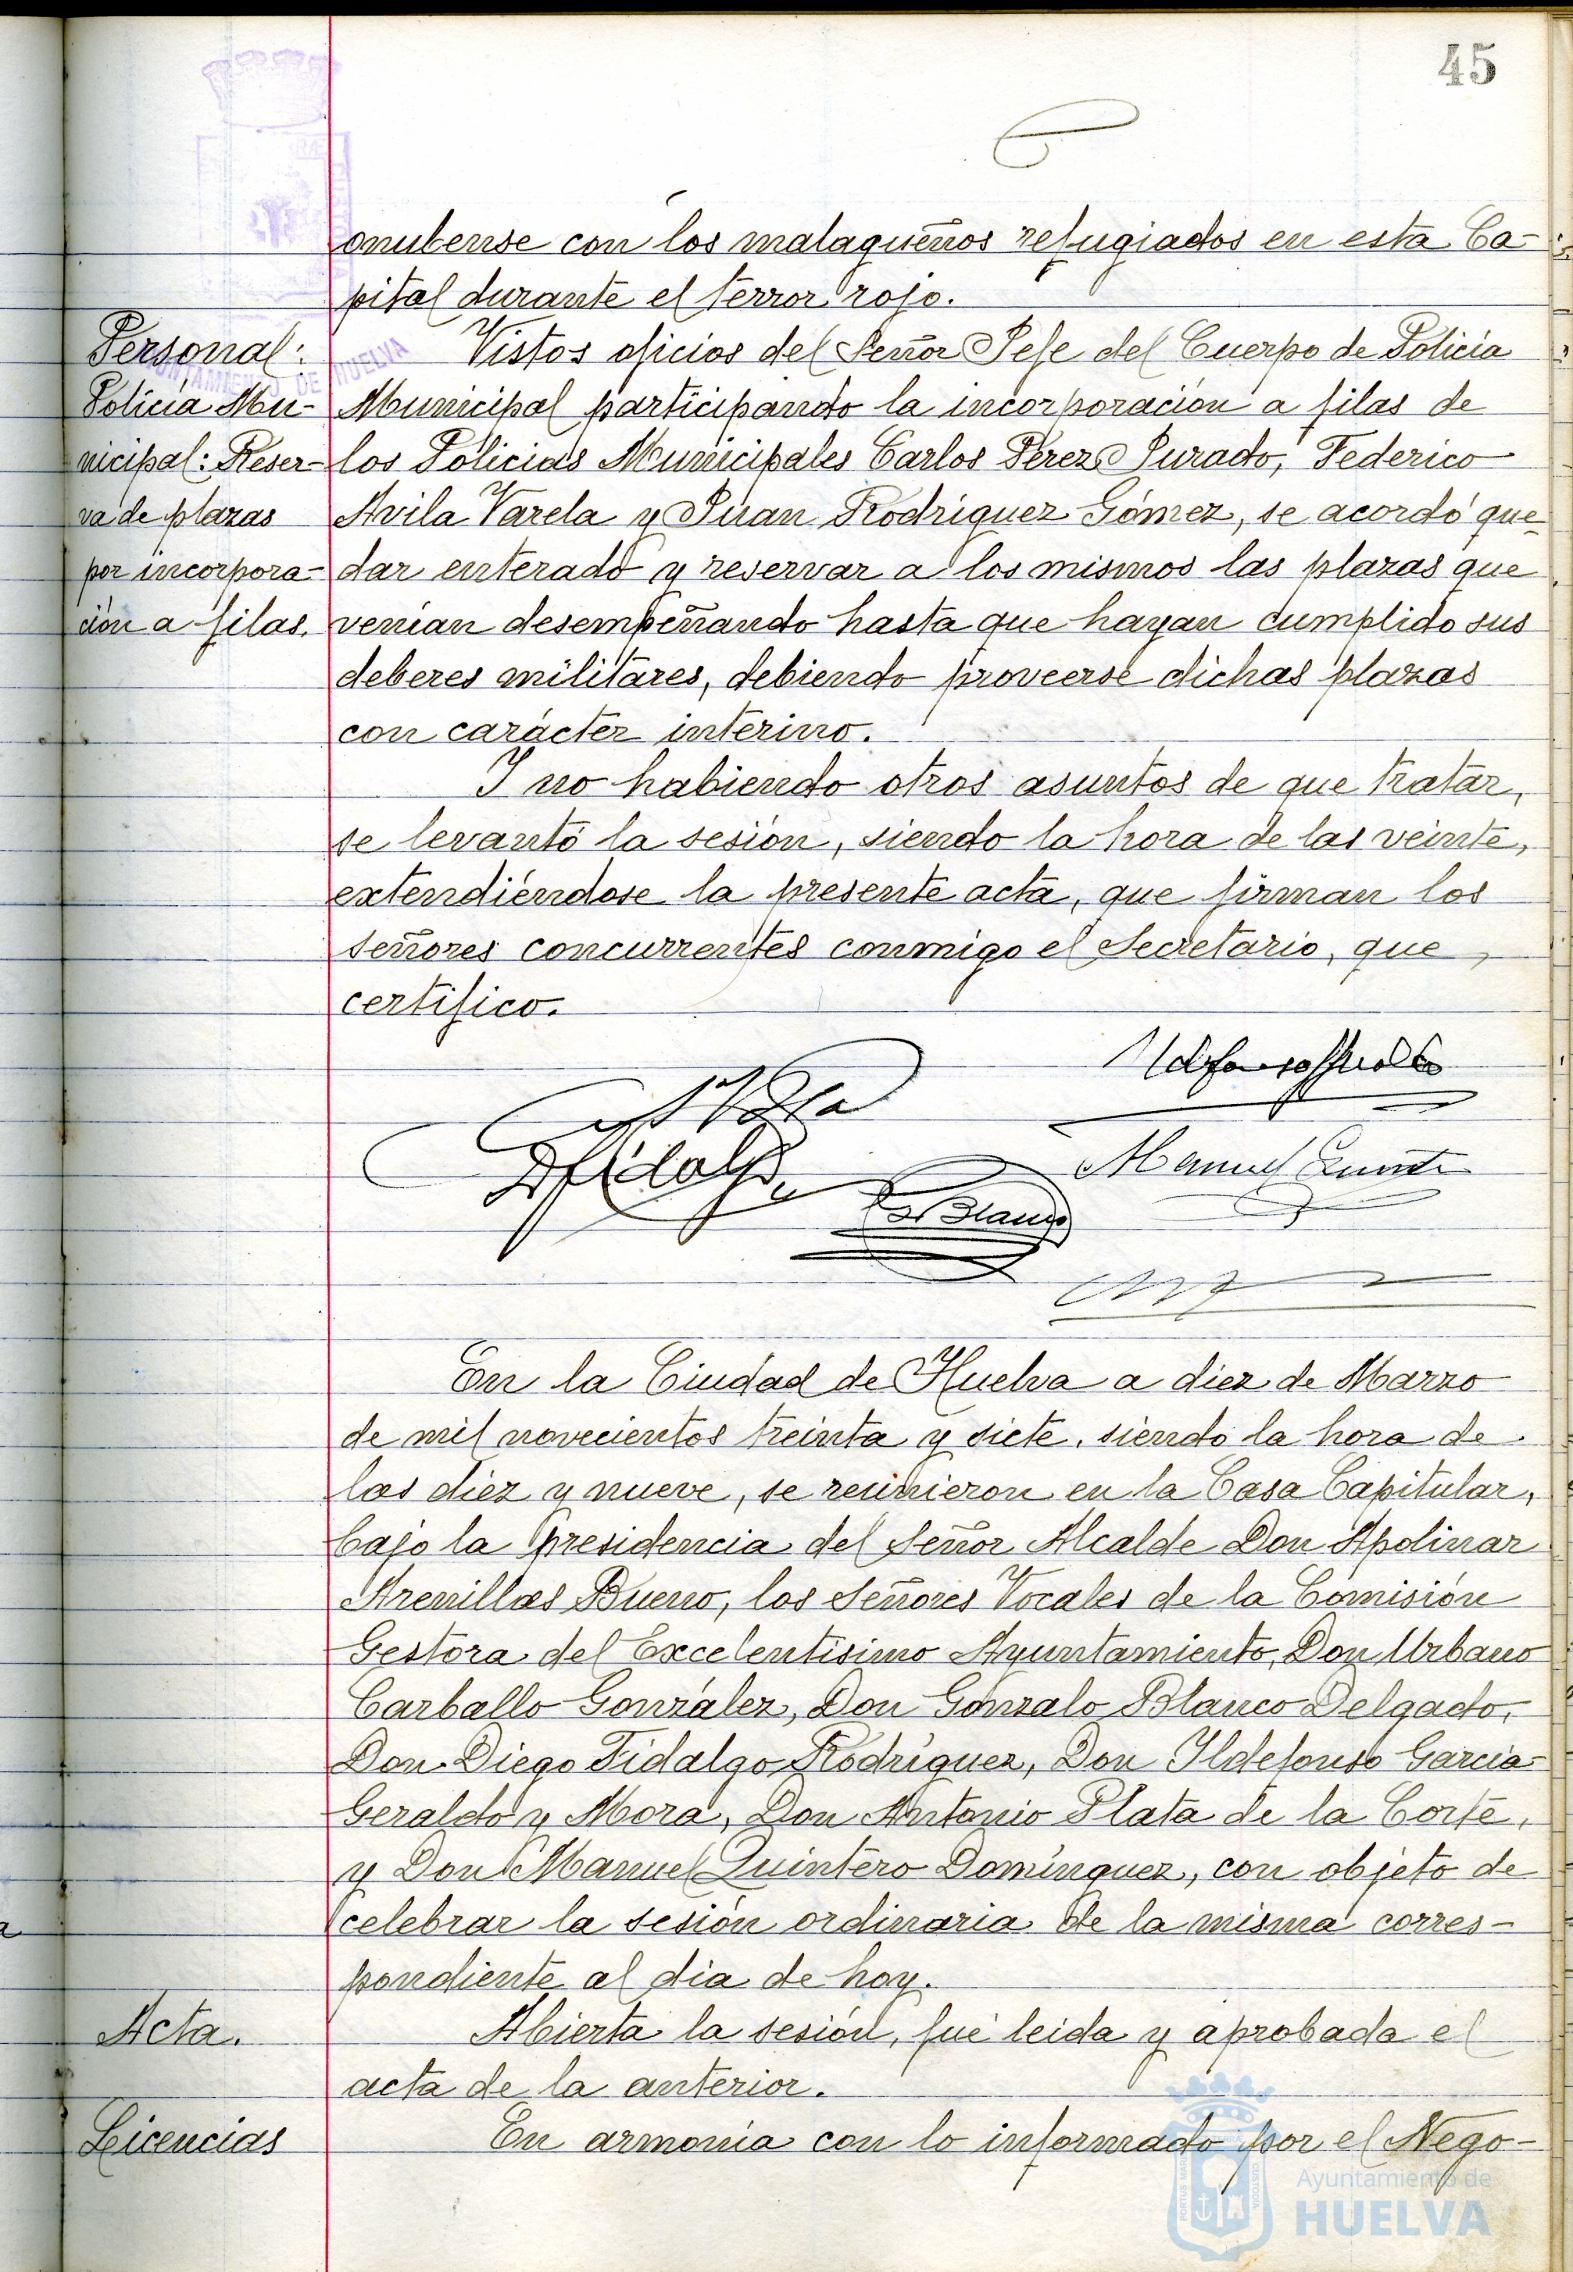 45
onubense con los malagueños refugiados en esta Ca-
pital durante el terror rojo.
Personal:
Policía Mu-
nicipal: Reser-
va de plazas
por incorpora-
ción a filas.
Vistos oficios del Señor Jefe del Cuerpo de Policía
Municipal participando la incorporación a filas de
los Policias Municipales Carlos Pérez Jurado, Federico
Avila Varela y Juan Rodríguez Gómez, se acordó que-
dar enterado y reservar a los mismos las plazas que
venían desempeñando hasta que hayan cumplido sus
deberes militares, debiendo proveerse dichas plazas
con carácter interino.
Y no habiendo otros asuntos de que tratar,
se levantó la sesión, siendo la hora de las veinte,
extendiéndose la presente acta, que firman los
señores concurrentes conmigo el Secretario, que
certifico.
DFidalgo
Blanco
Manuel
En la Ciudad de Huelva a diez de Marzo
de mil novecientos treinta y siete, siendo la hora de
las diez y nueve, se reunieron en la Casa Capitular,
bajo la presidencia del Señor Alcalde Don Apolinar
Arenillas Bueno, los Señores Vocales de la Comisión
Gestora del Excelentísimo Ayuntamiento, Don Urbano
Carballo González, Don Gonzalo Blanco Delgado,
Don Diego Fidalgo Rodríguez, Don Ildefonso Garcia-
Geraldo y Mora, Don Antonio Plata de la Corte,
y Don Manuel Quintero Domínguez, con objeto de
celebrar la sesión ordinaria de la misma corres-
pondiente al dia de hoy.
Acta.
Abierta la sesión, fué leida y aprobada el
acta de la anterior.
Licencias
En armonía con lo informado por el Nego-
Ayuntamiento de
HUELVA
AYUNTAMIENTO DE HUELVA